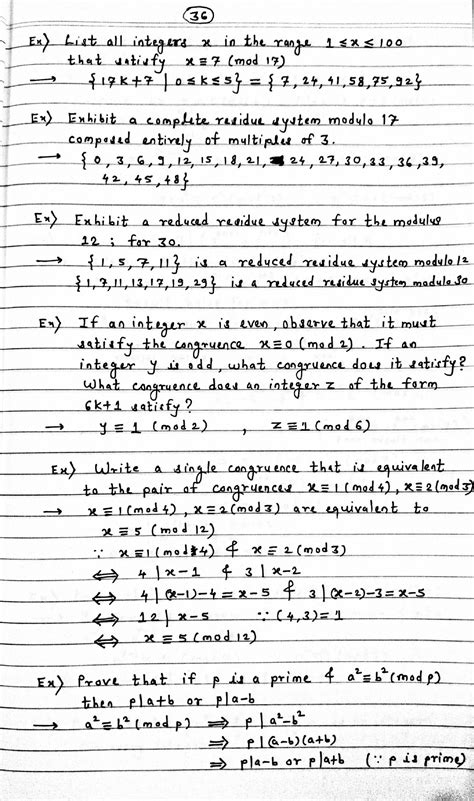 36
Ex) List all integers x in the range 1 ≤ x ≤ 100
that satisfy x ≡ 7 (mod 17)
→ {17k+7 | 0 ≤ k ≤ 5} = {7, 24, 41, 58, 75, 92}
Ex) Exhibit a complete residue system modulo 17
composed entirely of multiples of 3.
→ {0, 3, 6, 9, 12, 15, 18, 21, 24, 27, 30, 33, 36, 39,
42, 45, 48}
Ex) Exhibit a reduced residue system for the modulus
12 ; for 30.
→ {1, 5, 7, 11} is a reduced residue system modulo 12
{1, 7, 11, 13, 17, 19, 29} is a reduced residue system modulo 30
Ex) If an integer x is even, observe that it must
satisfy the congruence x ≡ 0 (mod 2). If an
integer y is odd, what congruence does it satisfy?
What congruence does an integer z of the form
6k+1 satisfy?
→ y ≡ 1 (mod 2) , z ≡ 1 (mod 6)
Ex) Write a single congruence that is equivalent
to the pair of congruences x ≡ 1 (mod 4), x ≡ 2 (mod 3)
→ x ≡ 1 (mod 4), x ≡ 2 (mod 3) are equivalent to
x ≡ 5 (mod 12)
∵ x ≡ 1 (mod 4) & x ≡ 2 (mod 3)
⇔ 4 | x-1 & 3 | x-2
⇔ 4 | (x-1)-4 = x-5 & 3 | (x-2)-3 = x-5
⇔ 12 | x-5 ∵ (4,3) = 1
⇔ x ≡ 5 (mod 12)
Ex) Prove that if p is a prime & a² ≡ b² (mod p)
then p|a+b or p|a-b
→ a² ≡ b² (mod p) ⇒ p | a²-b²
⇒ p | (a-b)(a+b)
⇒ p|a-b or p|a+b (∵ p is prime)